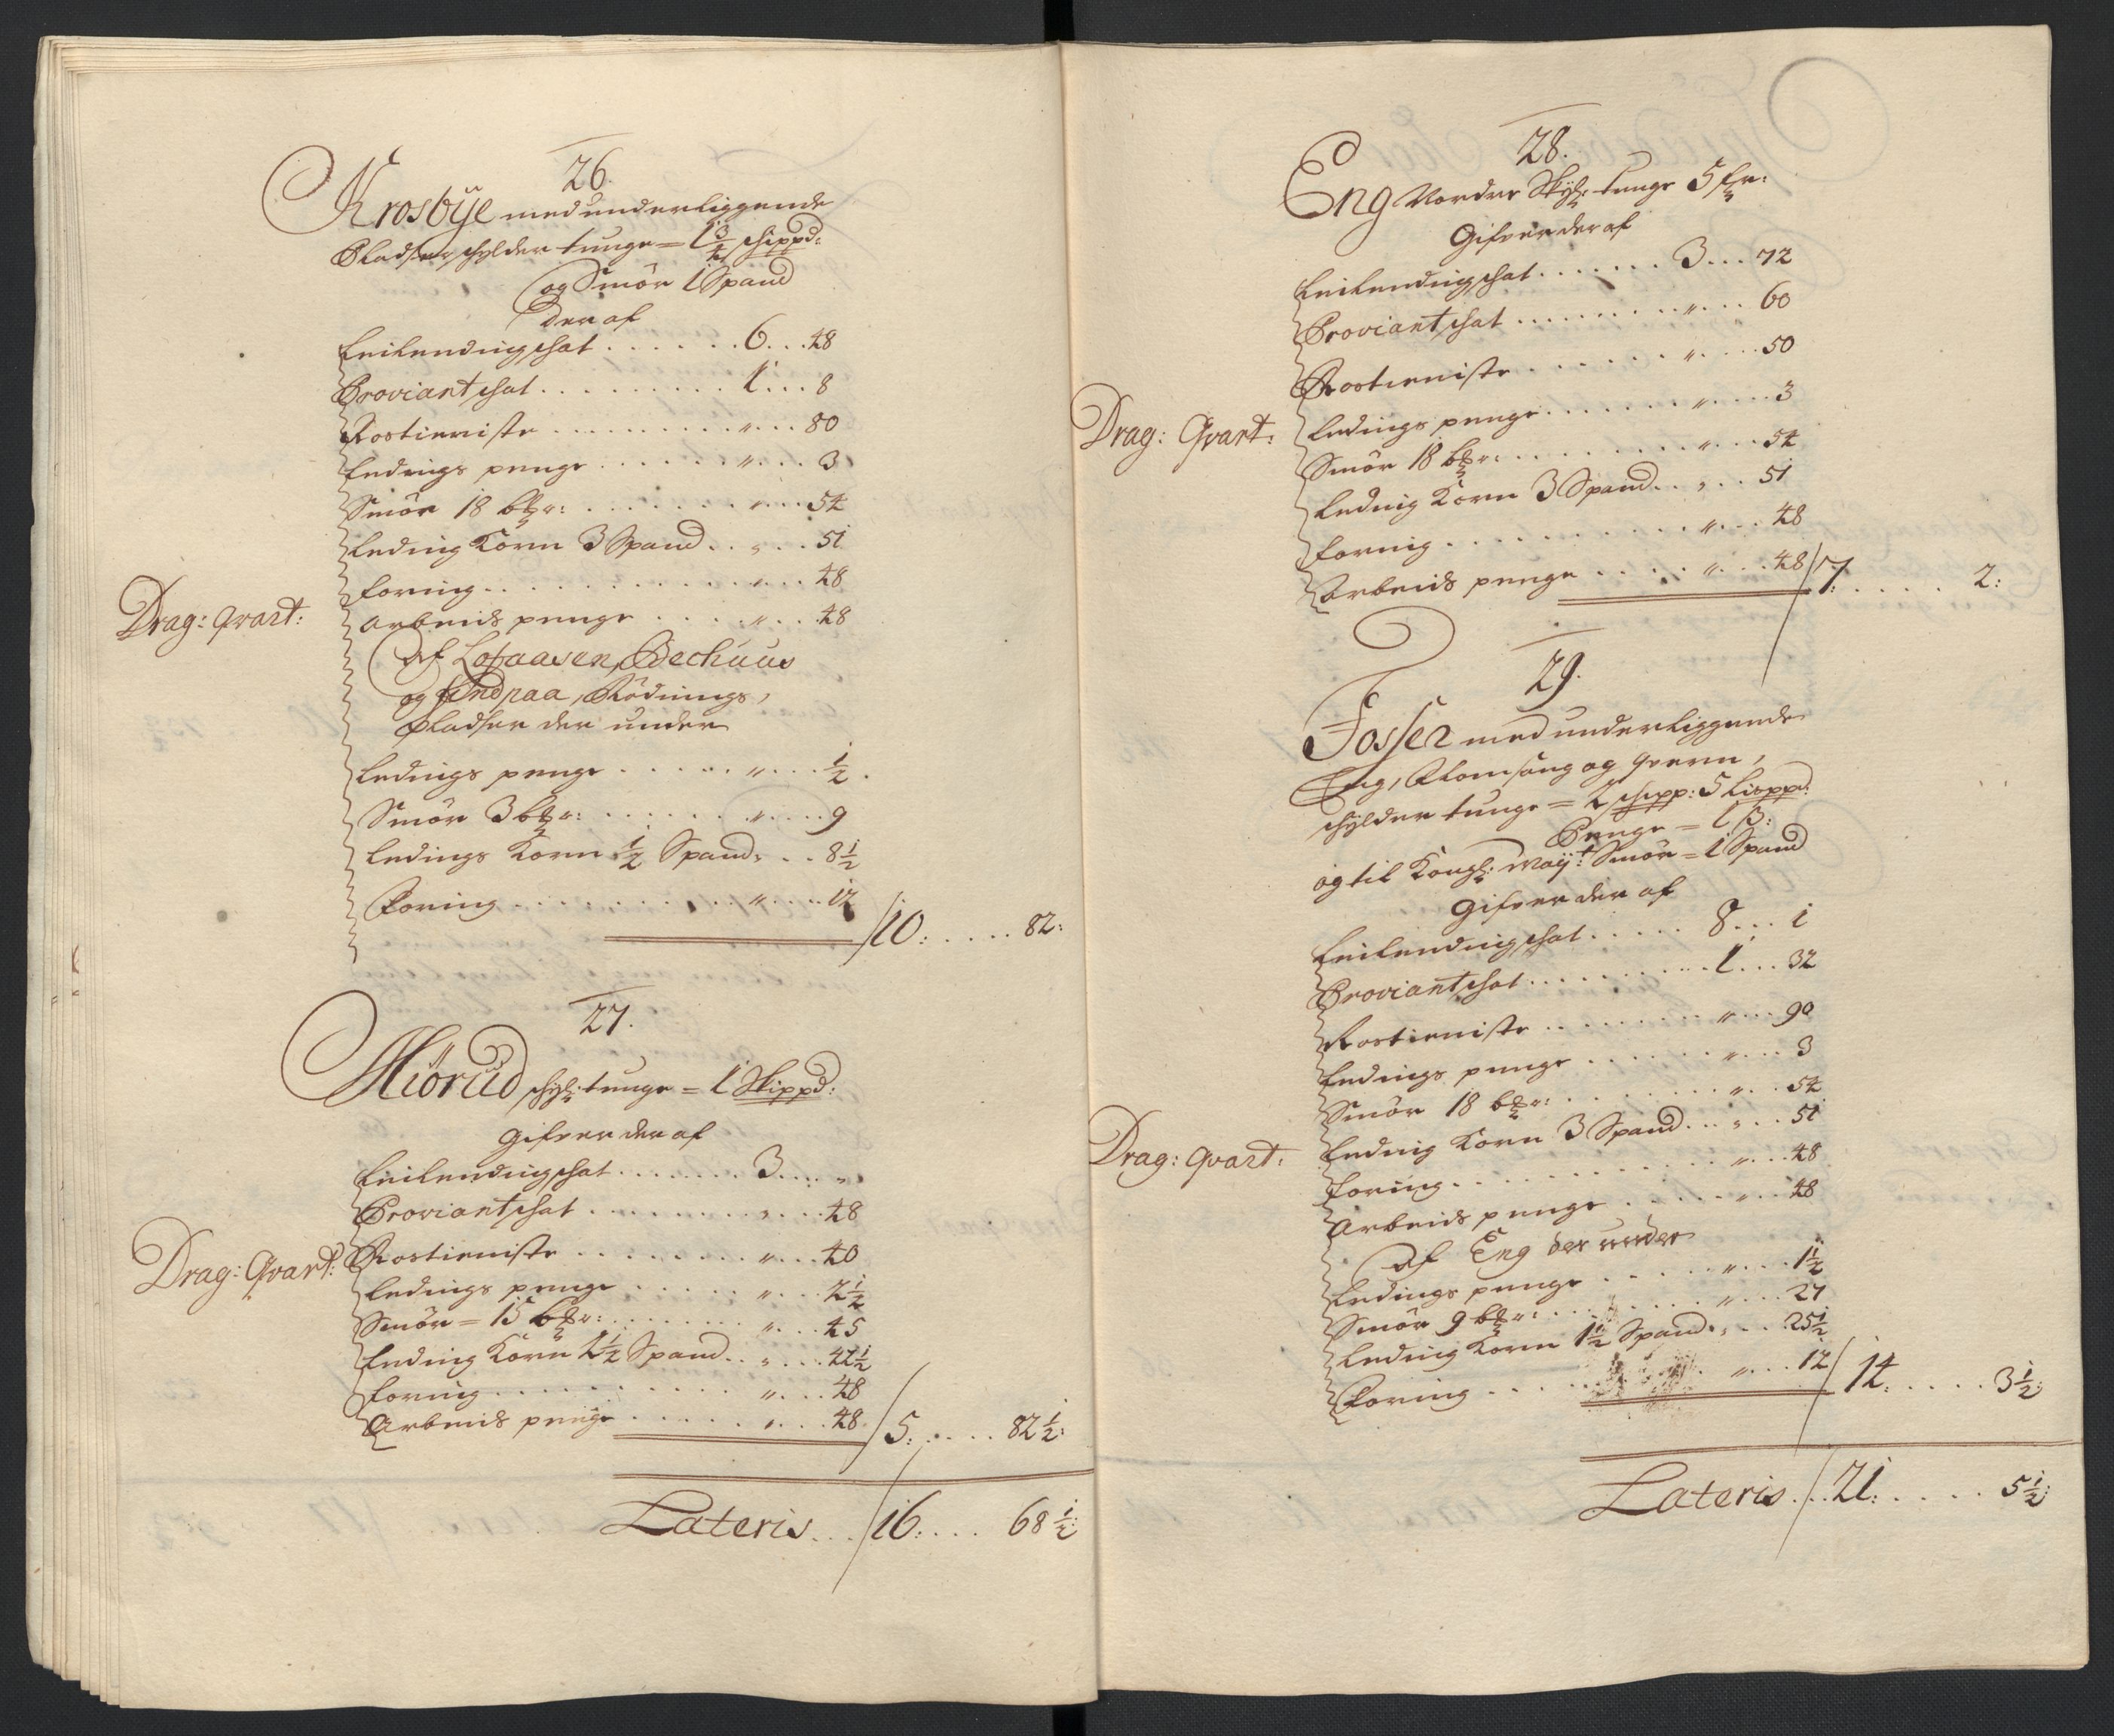 26.
Krosbÿe med underliggende
Pladser schylder tunge = 1 3/4 schippd:
og Smör 1 Spand
Der af
Leilendingschat . . . . . . 6 . . . 48
Proviantschat . . . . . . . . . 1 . . . 8
Rostieniste . . . . . . . . . . „ . . . 80
Ledings penge . . . . . . „ . . . 3
Smör 18 b℔r: . . . . . . . „ . . . 54
Leding Korn 3 Spand . . „ . . 51
Foring . . . . . . . . . . . „ . . . 48
Drag: qvart:
Arbeids penge . . . . „ . . . 48
Af Lofaasen, Bechuus
og Endpaa, Rödnings,
pladser der under
Ledings penge . . . . . „ . . . 1/2
Smör 3 b℔r: . . . . . . „ . . . 9
Ledings Korn 1/2 Spand „ . . 8 1/2
Foring . . . . . . . . . . „ . . . 12 / 10: . . . . 82:
27.
Miörud schyl: tunge = 1 Skippd:
Gifver der af
Leilendingschat . . . . . . . 3 . . . „
Proviantschat . . . . . . . . „ . . . 48
Rostieniste . . . . . . . . „ . . . 40
Drag: Qvart:
Ledings penge . . . . . „ . . . 2 1/2
Smör = 15 b℔r: . . . . . . . „ . . . 45
Leding Korn 2 1/2 Spand . . „ . . . 42 1/2
Foring . . . . . . . . . . „ . . . 48
Arbeids penge . . . . . „ . . . 48 / 5: . . . . 82 1/2:
Lateris . . . / 16: . . . 68 1/2:
28.
Eng Nordre Skyl: tunge 5 fr:
Gifver der af
Leilendingschat . . . . . . . 3 . . . 72
Proviantschat . . . . . . . . . „ . . . 60
Rostieniste . . . . . . . „ . . . 50
Drag: Qvart:
Ledings penge . . . . . . . „ . . . 3
Smör 18 b℔r: . . . . . . . . „ . . . 54
Leding Korn 3 Spand . . „ . . 51
Fornig . . . . . . . . . . . „ . . . 48
Arbeids penge . . . . „ . . . 48 / 7: . . . . . 2:
29.
Fosser med underliggende
Eng, Romsaug og qvern,
schylder tunge = 2 schipp: 5 Lispd:
Penge = 1 β:
og til Kongl: Maÿt: Smör = 1 Spand
Gifver der af
Leilendingschat . . . . . 8 . . . 1
Proviantschat . . . . . . . . . 1 . . . 32
Rostieniste . . . . . . . . „ . . . 90
Ledings penge . . . . . . „ . . . 3
Smör 18 b℔r: . . . . . . . „ . . . 54
Leding Korn 3 Spand . . „ . . . 51
Drag: qvart:
Foring . . . . . . . . . . . „ . . . 48
Arbeids penge . . . . . „ . . . 48
Af Eng der under
Ledings penge . . . . . „ . . . 1 1/2
Smör 9 b℔r: . . . . . . . „ . . . 27
Leding Korn 1 1/2 Spand „ . . 25 1/2
Foring . . . . . . . . . . „ . . . 12 / 14: . . . . 3 1/2:
Lateris . . . / 21: . . . . 5 1/2: